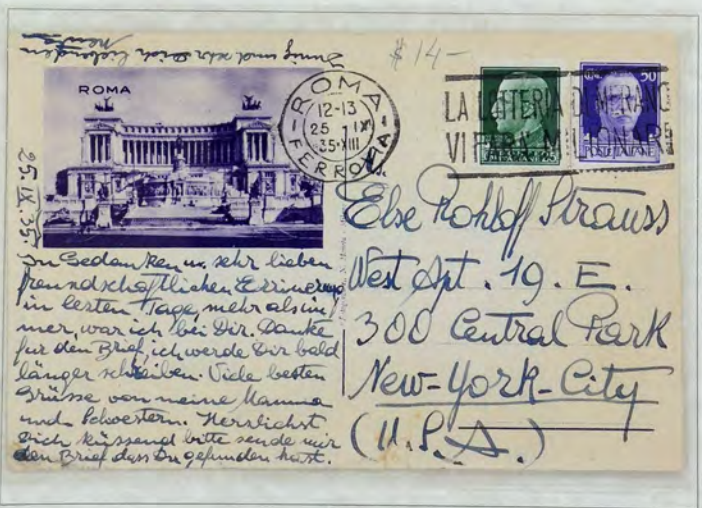 $ 14-
Innig und sehr Dich liebenden
ROMA
ROMA
12-13
25 IX
35·XIII
FERROVIA
LA LOTTERIA DI MERANO
VI FARÀ MILIONARI
50
POSTE ITALIANE
25. IX. 35.
In Gedanken u. sehr lieben
freundschaftlichen Errinerung
in lezten Tage, mehr als im
mer, war ich bei Dir. Danke
für den Brief, ich werde Dir bald
länger schreiben. Viele besten
Grüsse von meine Mamma
und Schwestern. Herzlichst
Dich küssend bitte sende mir
den Brief dass Du gefunden hast.
Else Rohloff Strauss
West Apt. 19. E.
300 Central Park
New-York-City
(U.S.A.)